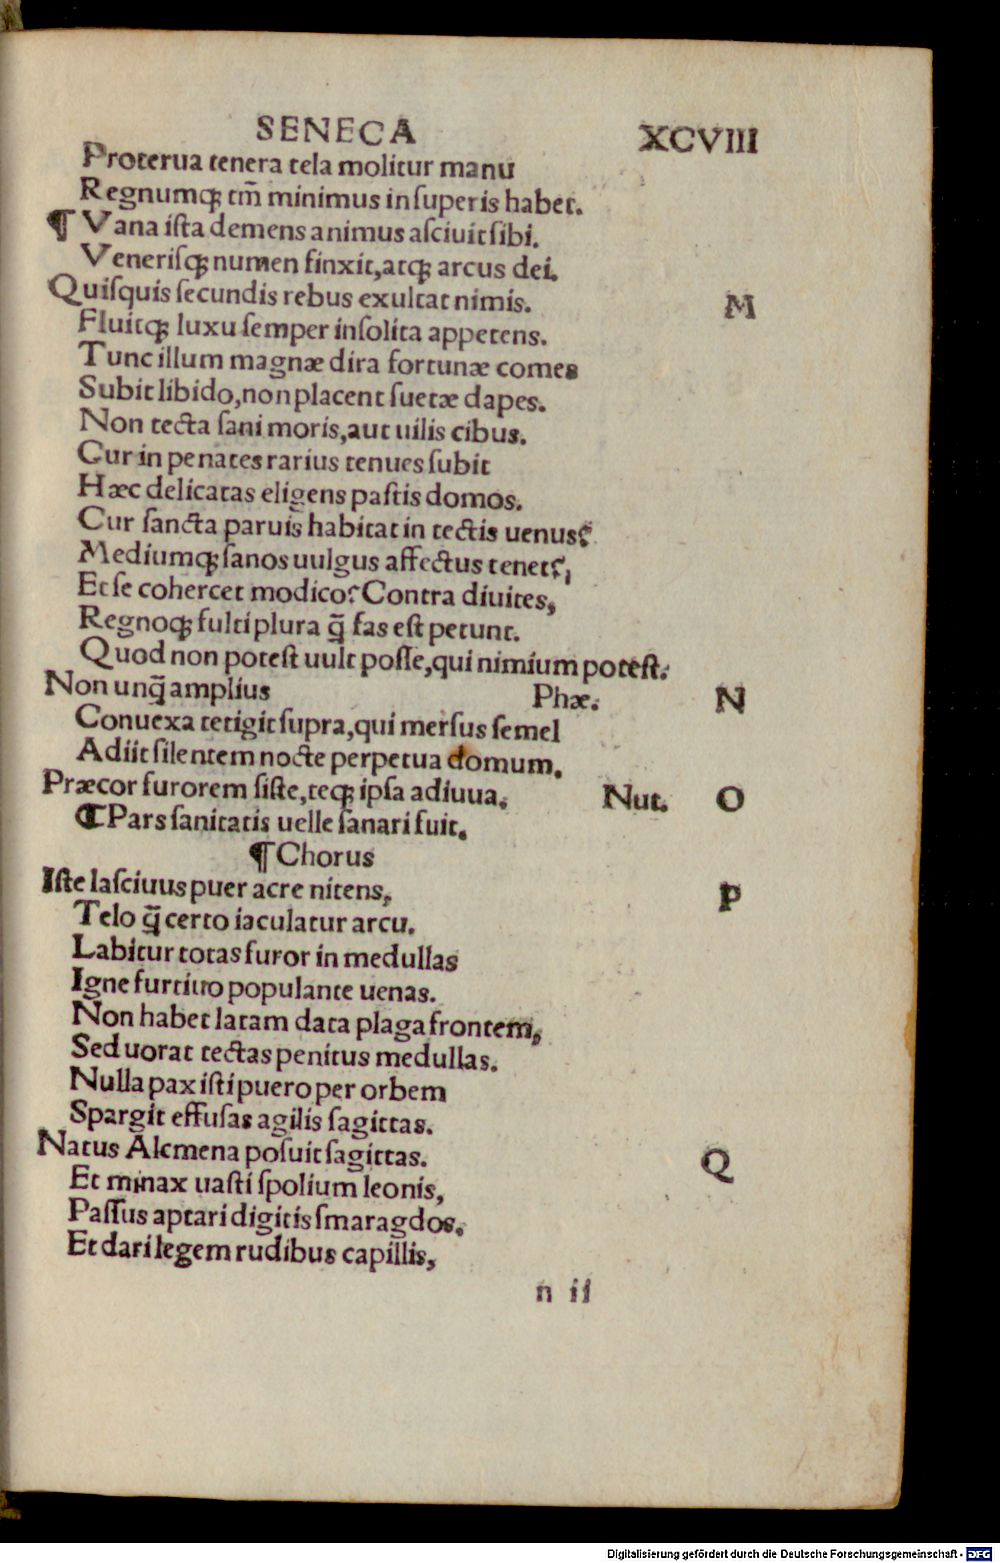 SENECA XCVIII
Proterua tenera tela molitur manu
Regnumq; tm̄ minimus in superis habet.
¶ Vana ista demens animus asciuit sibi.
Venerisq; numen finxit, atq; arcus dei.
Quisquis secundis rebus exultat nimis. M
Fluitq; luxu semper insolita appetens.
Tunc illum magnæ dira fortunæ comes
Subit libido, non placent suetæ dapes.
Non tecta sani moris, aut uilis cibus.
Cur in penates rarius tenues subit
Hæc delicatas eligens pastis domos.
Cur sancta paruis habitat in tectis uenus?
Mediumq; sanos uulgus affectus tenet?,
Et se cohercet modico? Contra diuites,
Regnoq; fulti plura q̄ fas est petunt.
Quod non potest uult posse, qui nimium potest.
Non unq̄ amplius Phæ. N
Conuexa tetigit supra, qui mersus semel
Adiit silentem nocte perpetua domum.
Præcor furorem siste, teq; ipsa adiuua. Nut. O
¶ Pars sanitatis uelle sanari fuit.
¶ Chorus
Iste lasciuus puer acre nitens, P
Telo q̄ certo iaculatur arcu.
Labitur totas furor in medullas
Igne furtiuo populante uenas.
Non habet latam data plaga frontem,
Sed uorat tectas penitus medullas.
Nulla pax isti puero per orbem
Spargit effusas agilis sagittas.
Natus Alcmena posuit sagittas. Q
Et minax uasti spolium leonis,
Passus aptari digitis smaragdos.
Et dari legem rudibus capillis,
n ii
Digitalisierung gefördert durch die Deutsche Forschungsgemeinschaft - DFG